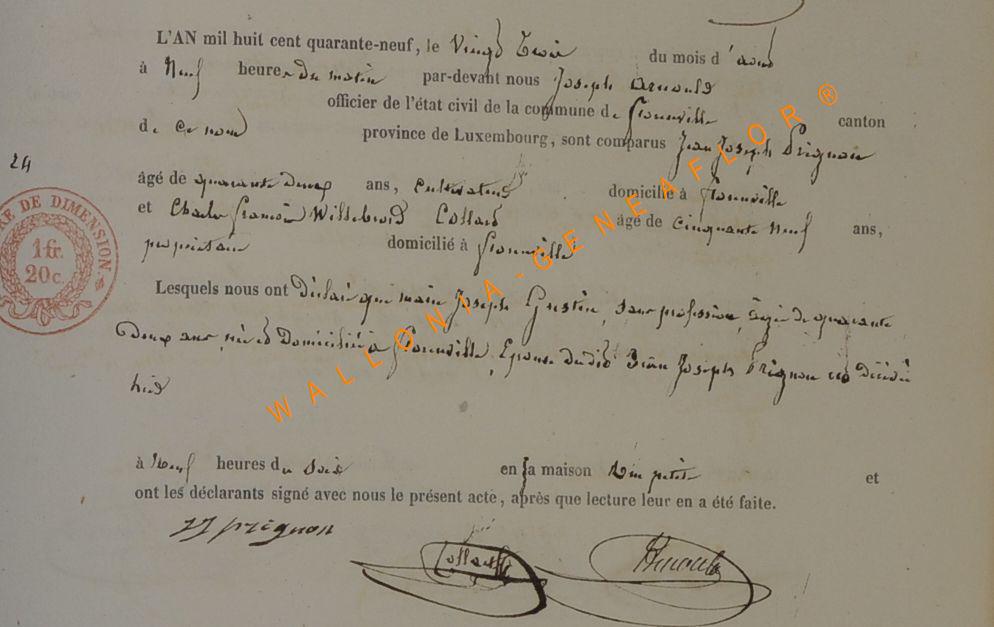 L'AN mil huit cent quarante-neuf, le Vingt Trois du mois d'aout
à Neuf heures du matin par-devant nous Joseph Arnould
officier de l'état civil de la commune de Sionville canton
de Ce nom province de Luxembourg, sont comparus Jean Joseph Prignon
24
âgé de quarante deux ans, Cultivateur domicilié à
et Charles François Willebrord Collard âgé de Cinquante Neuf ans,
propriétaire domicilié à
RE DE DIMENSION
1 fr.
20c.
Lesquels nous ont Déclaré que marie Joseph Gustin, Sans profession, âgée de quarante
Deux ans, née et Domiciliée à Epouse dudit Jean Joseph Prignon est Décédée
hier
à Neuf heures du Soir en sa maison et
ont les déclarants signé avec nous le présent acte, après que lecture leur en a été faite.
JJ prignon Collard Arnould
WALLONIA-GENEAFLOR ®